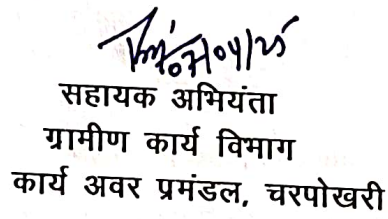 07/04/25
सहायक अभियंता
ग्रामीण कार्य विभाग
कार्य अवर प्रमंडल, चरपोखरी